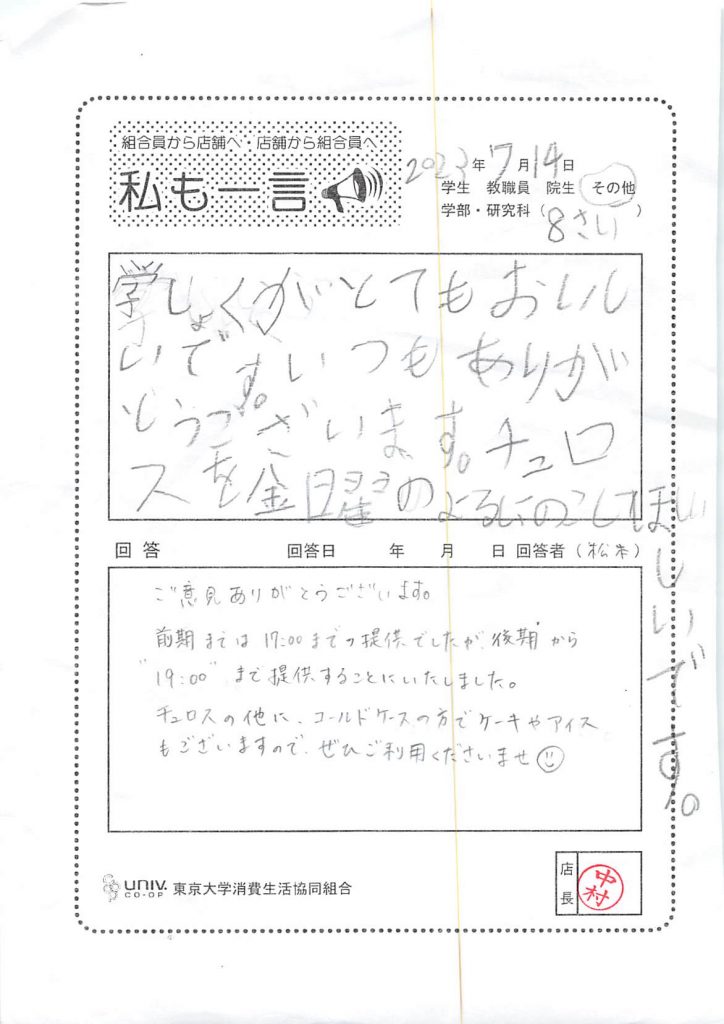 組合員から店舗へ・店舗から組合員へ
私も一言
2023年7月14日
学生 教職員 院生 その他
学部・研究科(8さい)
学しょくがとてもおいし
いです。いつもありが
とうございます。チュロ
スを金曜のよるにのこしてほしい
しいです。
回答 回答日 年 月 日 回答者(松本)
ご意見ありがとうございます。
前期までは17:00までの提供でしたが、後期から
"19:00"まで提供することにいたしました。
チュロスの他に、コールドケースの方でケーキやアイス
もございますので、ぜひご利用くださいませ
UNIV.
CO-OP
東京大学消費生活協同組合
店長
中村